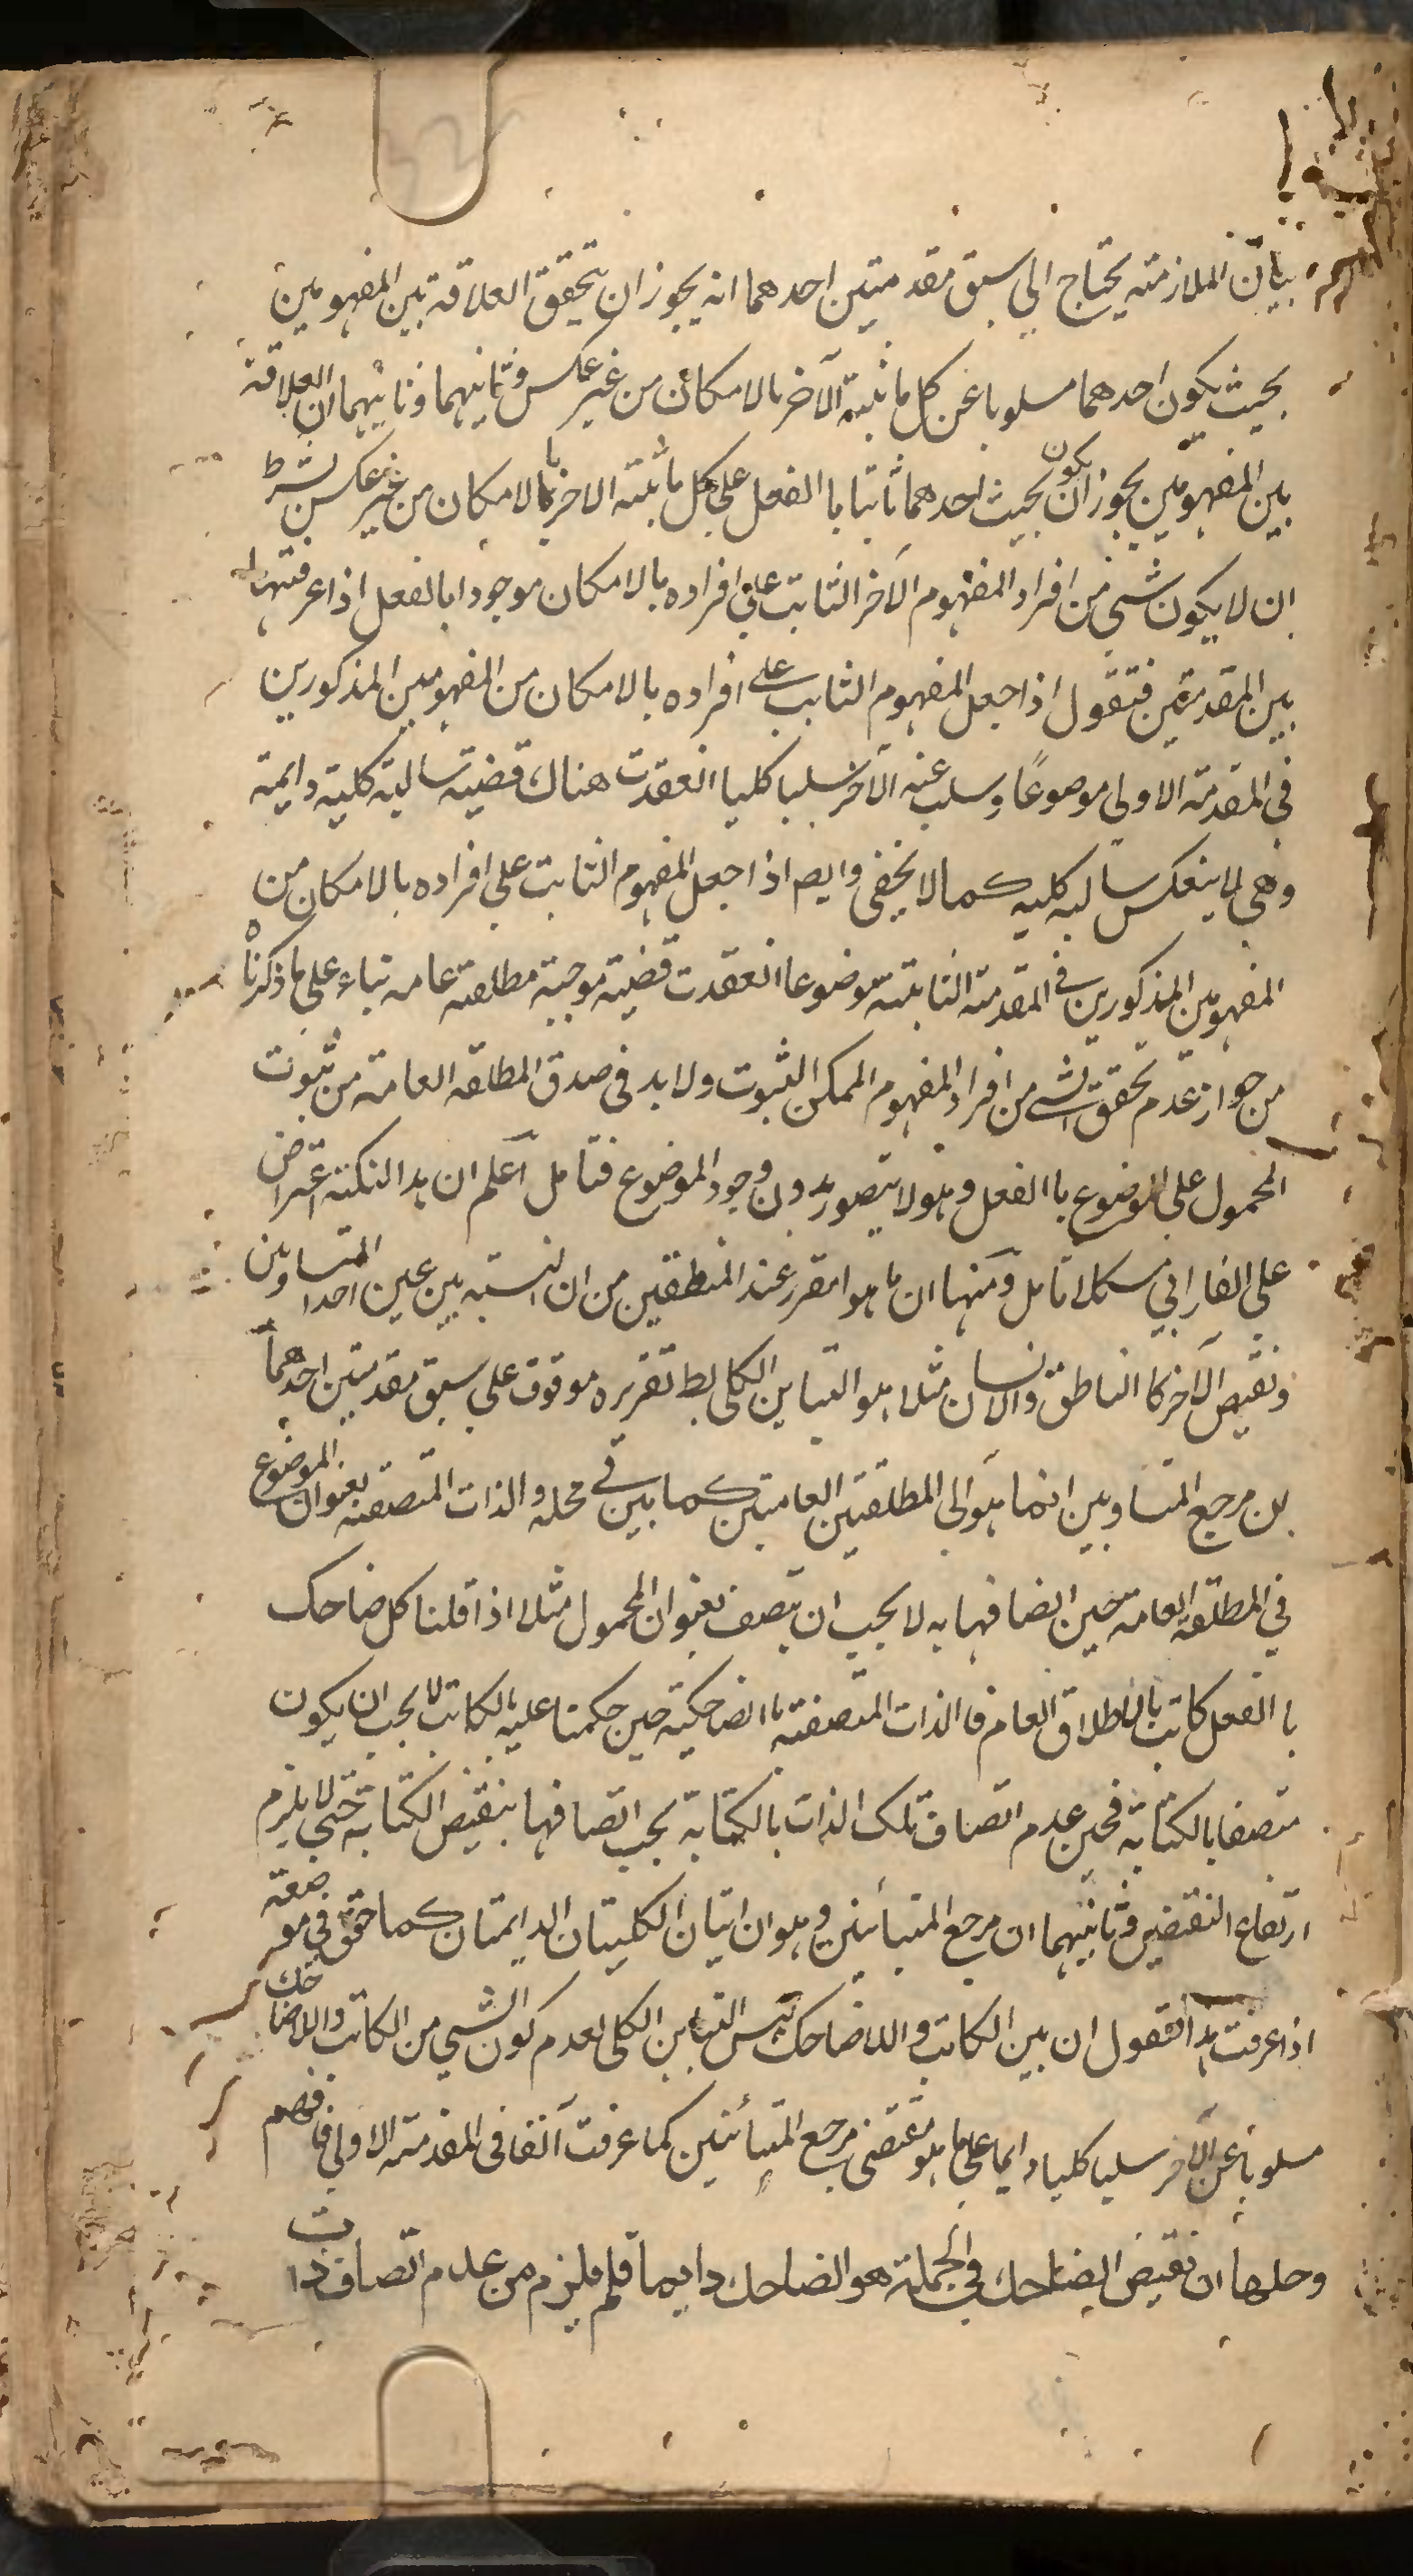 بيان الملازمته يحتاج الي سبق مقدمتين احدهما انه يجوز ان يتحقق العلاقة بين المفهومين
بحيث يكون احدهما مسلوبا عن كل ما ثبته الآخر بالامكان من غير عكس وثانيهما وثانيهما ان العلاقة
بين المفهومين يجوز ان يكون بحيث احدهما ثابتا باالفعل علي كل ما ثبته الاخر بالامكان من غير عكس بشرط
ان لا يكون شي من افراد المفهوم الآخر الثابت علي افراده بالامكان موجودا بالفعل اذا عرفت
بين المقدمتين فنقول اذا جعل المفهوم الثابت علي افراده بالامكان من المفهومين المذكورين
في المقدمته الاولي موضوعًا وسلب عنه الآخر سلبا كليا انعقدت هناك قضيته سالبته كليته دايمته
وهي لا ينعكس سالبه كليه كما لا يخفي وايضا اذا جعل المفهوم الثابت علي افراده بالامكان من
المفهومين المذكورين في المقدمته الثانيته موضوعا انعقدت قضيته موجبته مطلقته عامه بناء علي ما ذكرناه
من جواز عدم تحقق شي من افراد المفهوم الممكن الثبوت ولا بد في صدق المطلقه العامته من ثبوت
المحمول علي الموضوع باالفعل وهو لا يتصور بدون وجود الموضوع فتامل اعلم ان هذا النكتة اعتراض
علي الفارابي تامل ومنها ان ما هو امقرر عند المنطقين من ان النسبته بين عين احد المتساوين
ونقيض الآخر كا الناطق والانسان مثلا هو التباين الكلي بط تقريره موقوف علي سبق مقدمتين احدهما
ان مرجع المتساويين انما هو الي المطلقتين العامتين كما بين في محله والذات المتصفته بعنوان الموضوع
في المطلقه العامته حين اتصافها به لا يجب ان يتصف بعنوان المحمول مثلا اذا قلنا كل ضاحك
باالفعل كاتب بالاطلاق العام فا الذات المتصفته باالضاحكيته حين حكمنا عليه بالكاتب لا يجب ان يكون
متصفا بالكتابة فحين عدم اتصاف تلك الذات بالكتابة يجب اتصافها بنقيض الكتابة حتي لا يلزم
ارتفاع النقيضين وثانيهما ان مرجع المتبائنين وهو ان الكليتان الدايمتان كما حقق في موضعه
اذا عرفت هذا فنقول ان بين الكاتب واللاضاحك ليس التباين الكلي لعدم كون الشي من الكاتب واللاضاحك
مسلوبا عن الآخر سلبا كليا دايما علي ما هو مقتضي مرجع المتبائنين كما عرفت آنفا في المقدمته الاولي فافهم
وحلها ان نقيض الضاحك في الجملة هو الضاحك دايما فلم يلزم من عدم اتصاف ذات